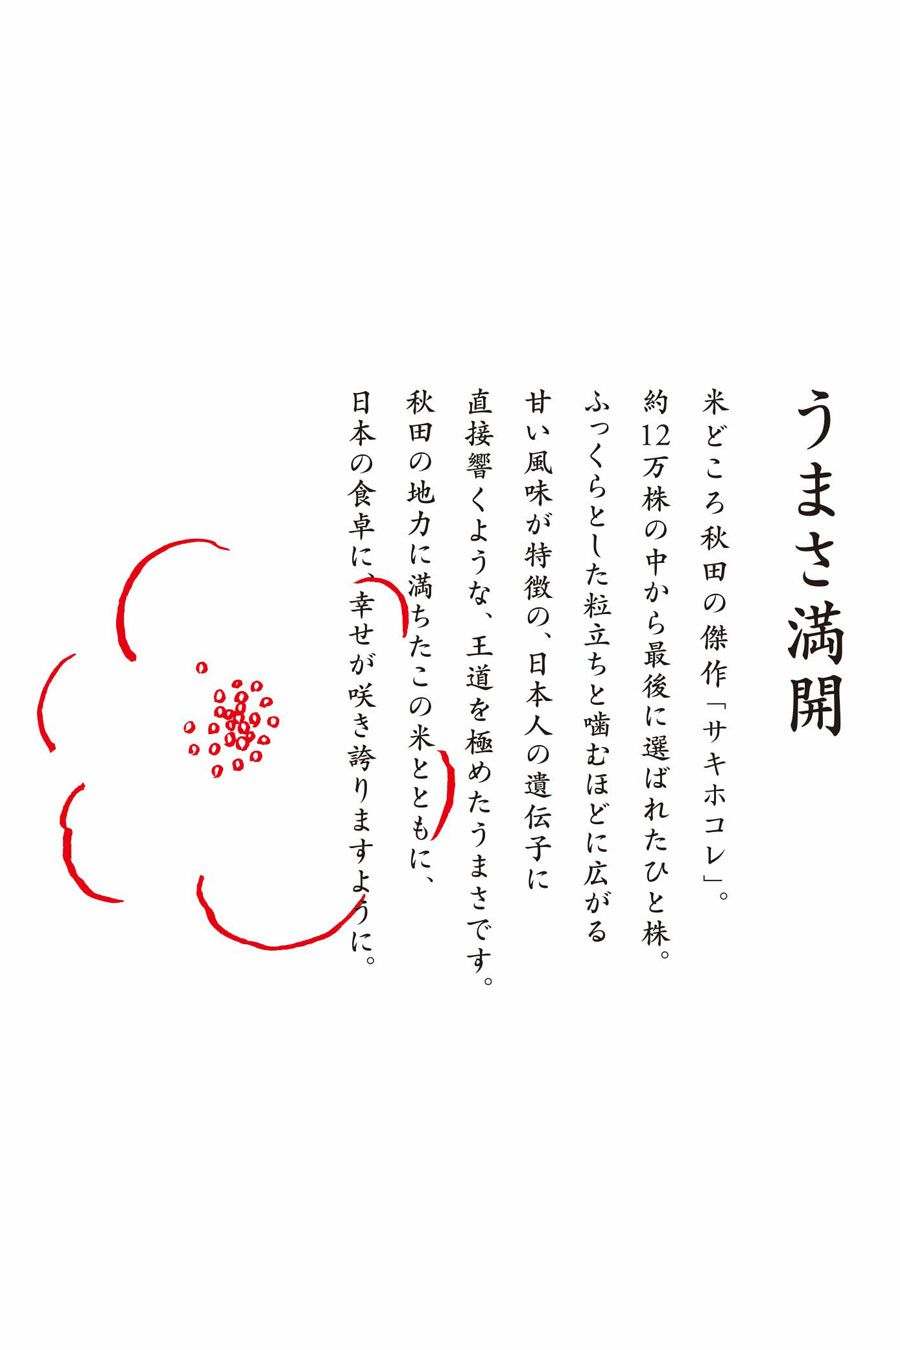 うまさ満開
米どころ秋田の傑作「サキホコレ」。
約12万株の中から最後に選ばれたひと株。
ふっくらとした粒立ちと噛むほどに広がる
甘い風味が特徴の、日本人の遺伝子に
直接響くような、王道を極めたうまさです。
秋田の地力に満ちたこの米とともに、
日本の食卓に、幸せが咲き誇りますように。